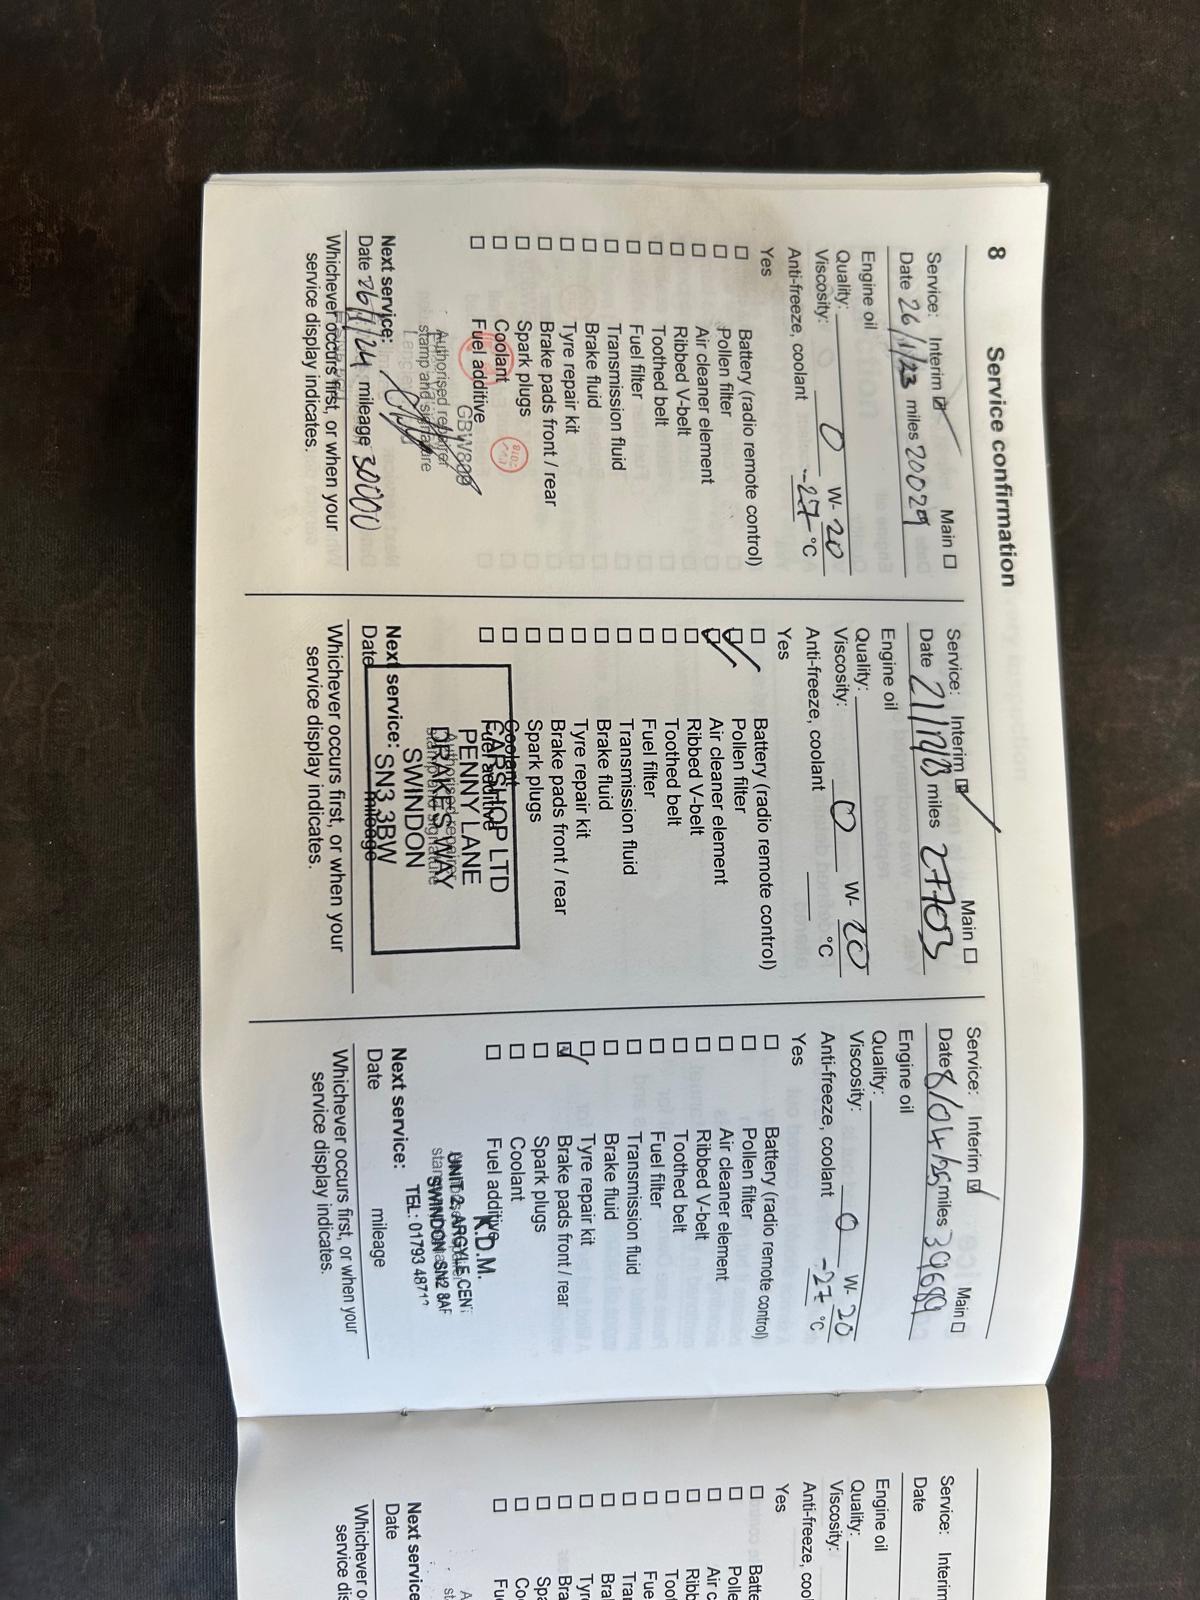 8 Service confirmation
Service: Interim Main
Date 26/1/23 miles 20029
Engine oil
Quality:
Viscosity: 0 W- 20
Anti-freeze, coolant -27 °C
Yes
Battery (radio remote control)
Pollen filter
Air cleaner element
Ribbed V-belt
Toothed belt
Fuel filter
Transmission fluid
Brake fluid
Tyre repair kit
Brake pads front / rear
Spark plugs
Coolant
Fuel additive
GBW809
Authorised repairer
stamp and signature
Next service:
Date 26/1/24 mileage 30000
Whichever occurs first, or when your
service display indicates.
Service: Interim Main
Date miles 27703
Engine oil
Quality:
Viscosity: 0 W- 20
Anti-freeze, coolant °C
Yes
Battery (radio remote control)
Pollen filter
Air cleaner element
Ribbed V-belt
Toothed belt
Fuel filter
Transmission fluid
Brake fluid
Tyre repair kit
Brake pads front / rear
Spark plugs
Coolant
Fuel additive
CARSHOP LTD
PENNY LANE
Authorised repairer
DRAKES WAY
stamp and signature
SWINDON
Next service: SN3 3BW
Date mileage
Whichever occurs first, or when your
service display indicates.
Service: Interim Main
Date 8/04/25 miles
Engine oil
Quality:
Viscosity: 0 W- 20
Anti-freeze, coolant -27 °C
Yes
Battery (radio remote control)
Pollen filter
Air cleaner element
Ribbed V-belt
Toothed belt
Fuel filter
Transmission fluid
Brake fluid
Tyre repair kit
Brake pads front / rear
Spark plugs
Coolant
Fuel additive
K.D.M.
UNIT 2, ARGYLE CENT
SWINDON SN2 8AR
TEL: 01793 4871
Next service:
Date mileage
Whichever occurs first, or when your
service display indicates.
Service: Interim
Date
Engine oil
Quality:
Viscosity:
Anti-freeze, cool
Yes
Batte
Polle
Air c
Ribb
Toot
Fue
Tra
Bra
Tyr
Bra
Spa
Co
Fue
Next service
Date
Whichever o
service dis